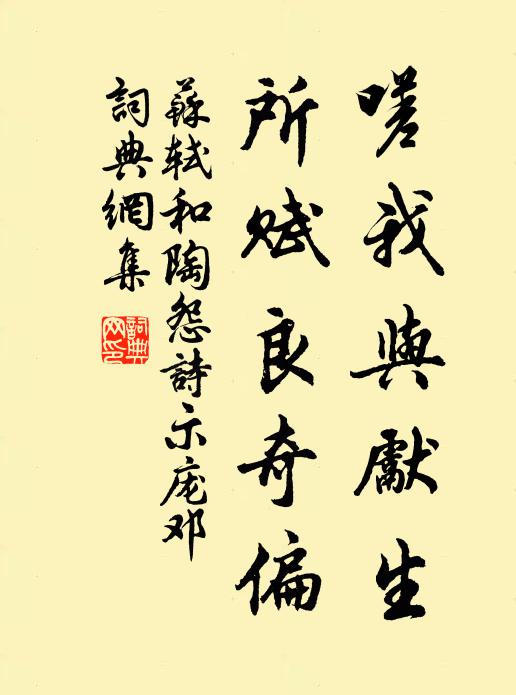 嗟我與獻生
所賦良奇偏
蘇軾和陶怨詩示庞邓
詞典網集
詞典網印